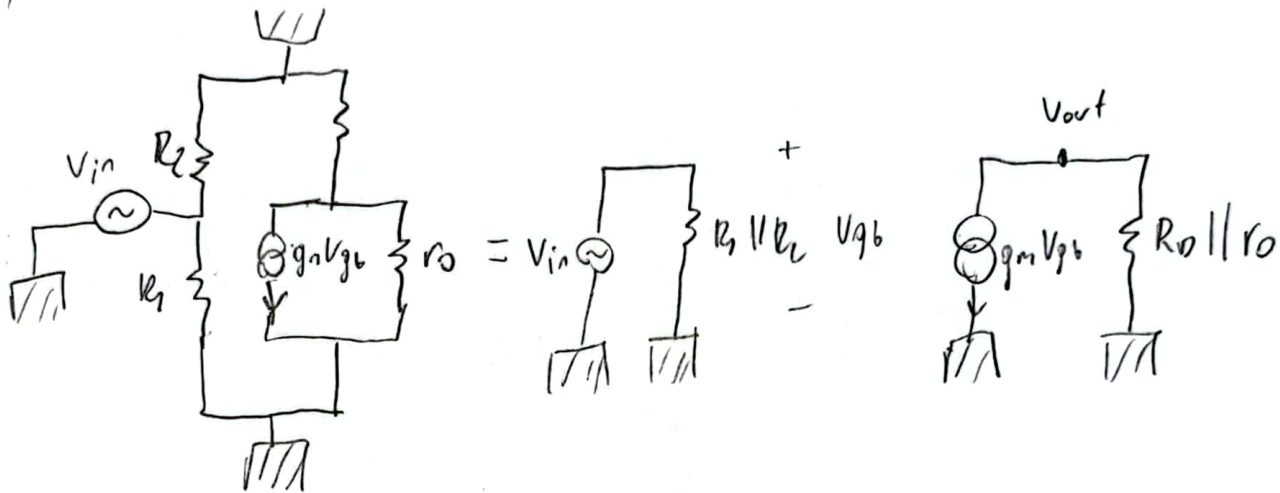 Vin
R2
R1
gmVgb
ro
=
Vin
R1 || R2
+
Vgb
–
Vout
gmVgb
RD || ro